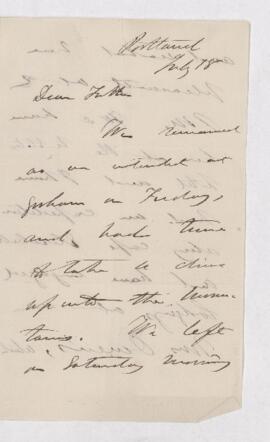 Portland
July 18
Dear Father
We remained
as we intended at
Gorham on Friday,
and had time
to take a drive
up into the moun-
tains. We left
on Saturday morning